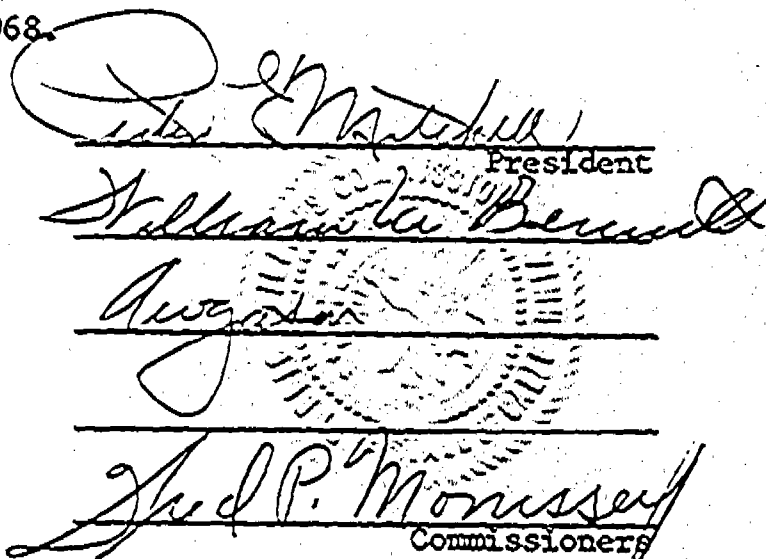 968.
Peter E Mitchell
President
William M Bennett
Fred P. Morrissey
Commissioners